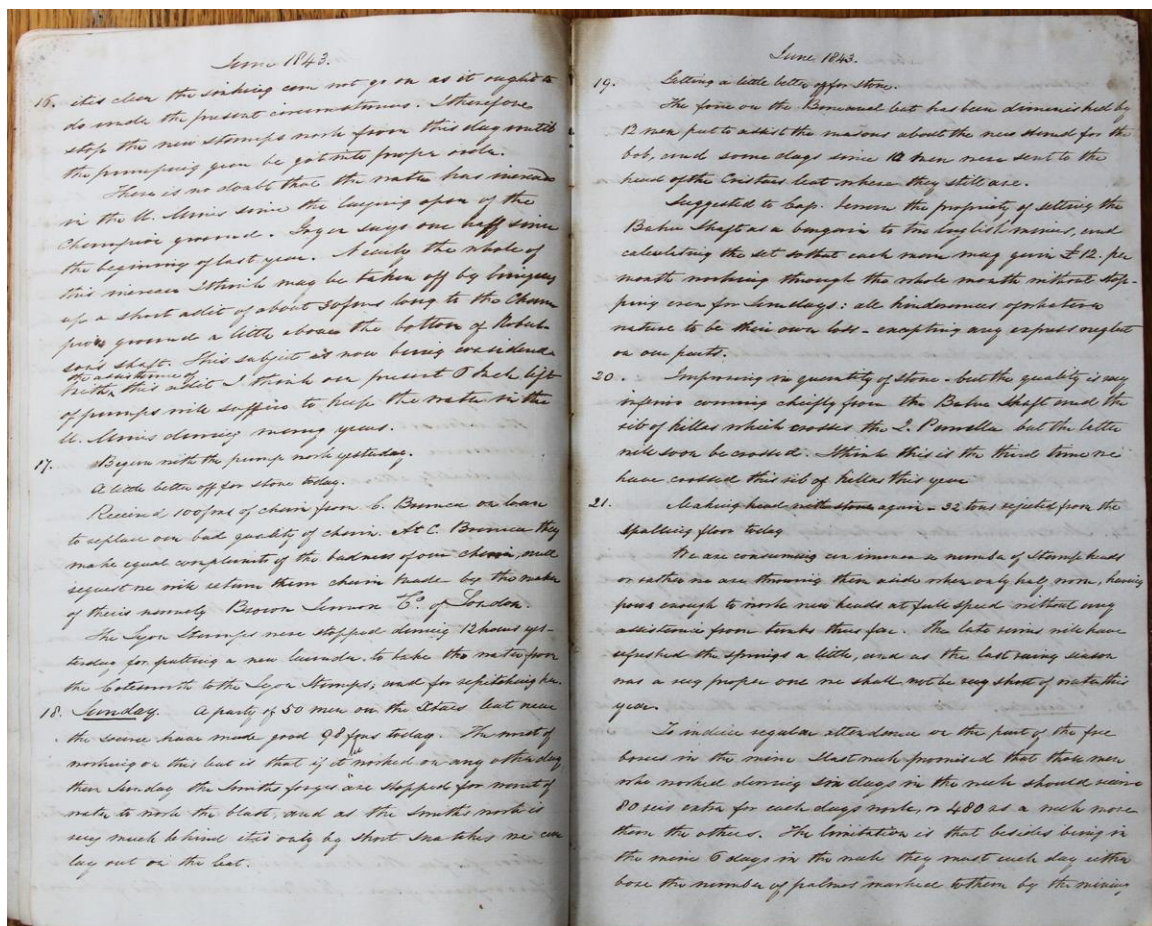 June 1843.
16. it is clear the sinking can not go on as it ought to
do under the present circumstances. I therefore
stop the new stamps work from this day until
the pumping gear be got into proper order.
There is no doubt that the water has increased
in the U. Mines since the laying open of the
Champion ground. Jager says one half since
the beginning of last year. Nearly the whole of
this increase I think may be taken off by bringing
up a short adit of about 30 fms long to the Cham
pion ground a little above the bottom of Robert-
son's shaft. This subject is now being considered
the assistance of
With this adit I think our present 6 Inch lift
of pumps will suffice to keep the water in the
U. Mines during many years.
17. Began with the pump work yesterday.
A little better off for stone today.
Received 100 fms of chain from C. Branca on loan
to replace our bad quality of chain. At C. Branca they
make equal complaints of the badness of our chain, and
request we will return them chain made by the maker
of theirs namely Brown Lennon & Co. of London.
The Lyon Stamps were stopped during 12 hours yes-
terday for putting a new launder to take the water from
the Cotesworth to the Lyon Stamps; and for repitching her.
18. Sunday. A party of 50 men on the Xtaes leat near
the source have made good 98 fms today. The worst of
working on this leat is that if it worked on any other day
than Sunday the Smiths forges are stopped for want of
water to work the blast, and as the Smiths work is
very much behind it is only by short snatches we can
lay out on the leat.
June 1843.
19. Getting a little better off for Stone.
The force on the Bananal leat has been diminished by
12 men put to assist the masons about the new stand for the
bob, and some days since 12 men were sent to the
head of the Cristaes leat where they still are.
Suggested to Cap. the propriety of setting the
Bahu Shaft as a bargain to the English miners, and
calculating the set so that each man may gain £12. per
month working through the whole month without stop-
ping even for Sundays: all hinderances of whatever
nature to be their own loss - excepting any express neglect
on our parts.
20. Improving in quantity of stone - but the quality is very
inferior coming chiefly from the Bahu Shaft and the
rib of killas which crosses the Q. Panella but the latter
will soon be crossed. I think this is the third time we
have crossed this rib of killas this year
21. Making head with stone again - 32 tons rejected from the
Spalling floor today
We are consuming an immense number of Stamp heads
or rather we are throwing them aside when only half worn, having
power enough to work new heads at full speed without any
assistance from tanks thus far. The late rains will have
refreshed the springs a little, and as the last rainy season
was a very proper one we shall not be very short of water this
year.
To induce regular attendance on the part of the free
borers in the mine I last week promised that those men
who worked during six days in the week should receive
80 reis extra for each days work, or 480 rs a week more
than the others. The limitation is that besides being in
the mine 6 days in the week they must each day either
bore the number of palms marked to them by the mining